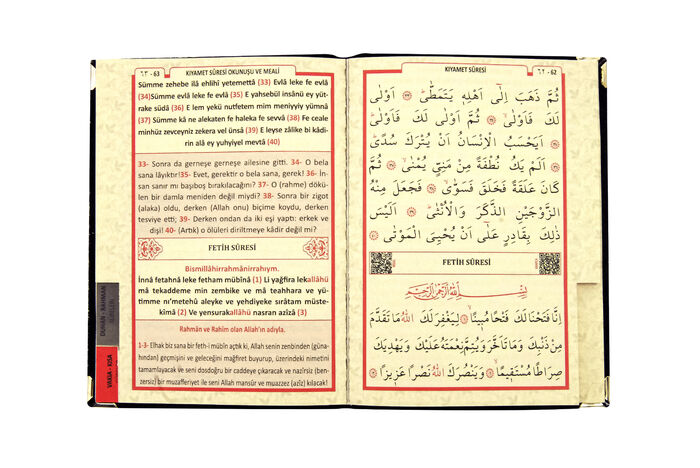 ٦٣ - 63
KIYAMET SÛRESİ OKUNUŞU VE MEALİ
Sümme zehebe ilâ ehlihî yetemettâ (33) Evlâ leke fe evlâ
(34)Sümme evlâ leke fe evlâ (35) E yahsebül insânü ey yüt-
rake südâ (36) E lem yekü nutfetem mim meniyyiy yümnâ
(37) Sümme kâ ne alekaten fe haleka fe sevvâ (38) Fe ceale
minhüz zevceyniz zekera vel ünsâ (39) E leyse zâlike bi kâdi-
rin alâ ey yuhyiyel mevtâ (40)
33- Sonra da gerneşe gerneşe ailesine gitti. 34- O bela
sana lâyıktır!35- Evet, gerektir o bela sana, gerek! 36- İn-
san sanır mı başıboş bırakılacağını? 37- O (rahme) dökü-
len bir damla meniden değil miydi? 38- Sonra bir zigot
(alaka) oldu, derken (Allah onu) biçime koydu, derken
tesviye etti; 39- Derken ondan da iki eşi yaptı: erkek ve
dişi! 40- (Artık) o ölüleri diriltmeye kâdir değil mi?
FETİH SÛRESİ
Bismillâhirrahmânirrahıym.
İnnâ fetahnâ leke fetham mübînâ (1) Li yağfira lekallâhü
mâ tekaddeme min zembike ve mâ teahhara ve yü-
timme nı'metehû aleyke ve yehdiyeke sırâtam müste-
kîmâ (2) Ve yensurakallâhü nasran azîzâ (3)
Rahmân ve Rahîm olan Allah'ın adıyla.
1-3- Elhak biz sana bir feth-i mübîn açtık ki, Allah senin zenbinden (güna-
hından) geçmişini ve geleceğini mağfiret buyurup, üzerindeki nimetini
tamamlayacak ve seni dosdoğru bir caddeye çıkaracak ve nazîrsiz (ben-
zersiz) bir muzafferiyet ile seni Allah mansûr ve muazzez (azîz) kılacak!
DUHAN - RAHMAN
VAKIA - KISA
KIYAMET SÛRESİ
٦٢ - 62
ثُمَّ ذَهَبَ اِلٰٓى اَهْلِه۪ يَتَمَطّٰىۜ ﴿٣٣﴾ اَوْلٰى
لَكَ فَاَوْلٰىۙ ﴿٣٤﴾ ثُمَّ اَوْلٰى لَكَ فَاَوْلٰىۜ
﴿٣٥﴾ اَيَحْسَبُ الْاِنْسَانُ اَنْ يُتْرَكَ سُدًىۜ
﴿٣٦﴾ اَلَمْ يَكُ نُطْفَةً مِنْ مَنِيٍّ يُمْنٰىۙ ﴿٣٧﴾ ثُمَّ
كَانَ عَلَقَةً فَخَلَقَ فَسَوّٰىۙ ﴿٣٨﴾ فَجَعَلَ مِنْهُ
الزَّوْجَيْنِ الذَّكَرَ وَالْاُنْثٰىۜ ﴿٣٩﴾ اَلَيْسَ
ذٰلِكَ بِقَادِرٍ عَلٰٓى اَنْ يُحْيِيَ الْمَوْتٰى ﴿٤٠﴾
FETİH SÛRESİ
بِسْمِ اللّٰهِ الرَّحْمٰنِ الرَّحِيمِ
اِنَّا فَتَحْنَا لَكَ فَتْحًا مُب۪ينًاۙ ﴿١﴾ لِيَغْفِرَ لَكَ اللّٰهُ مَا تَقَدَّمَ
مِنْ ذَنْبِكَ وَمَا تَاَخَّرَ وَيُتِمَّ نِعْمَتَهُ عَلَيْكَ وَيَهْدِيَكَ
صِرَاطًا مُسْتَق۪يمًاۙ ﴿٢﴾ وَيَنْصُرَكَ اللّٰهُ نَصْرًا عَز۪يزًا ﴿٣﴾